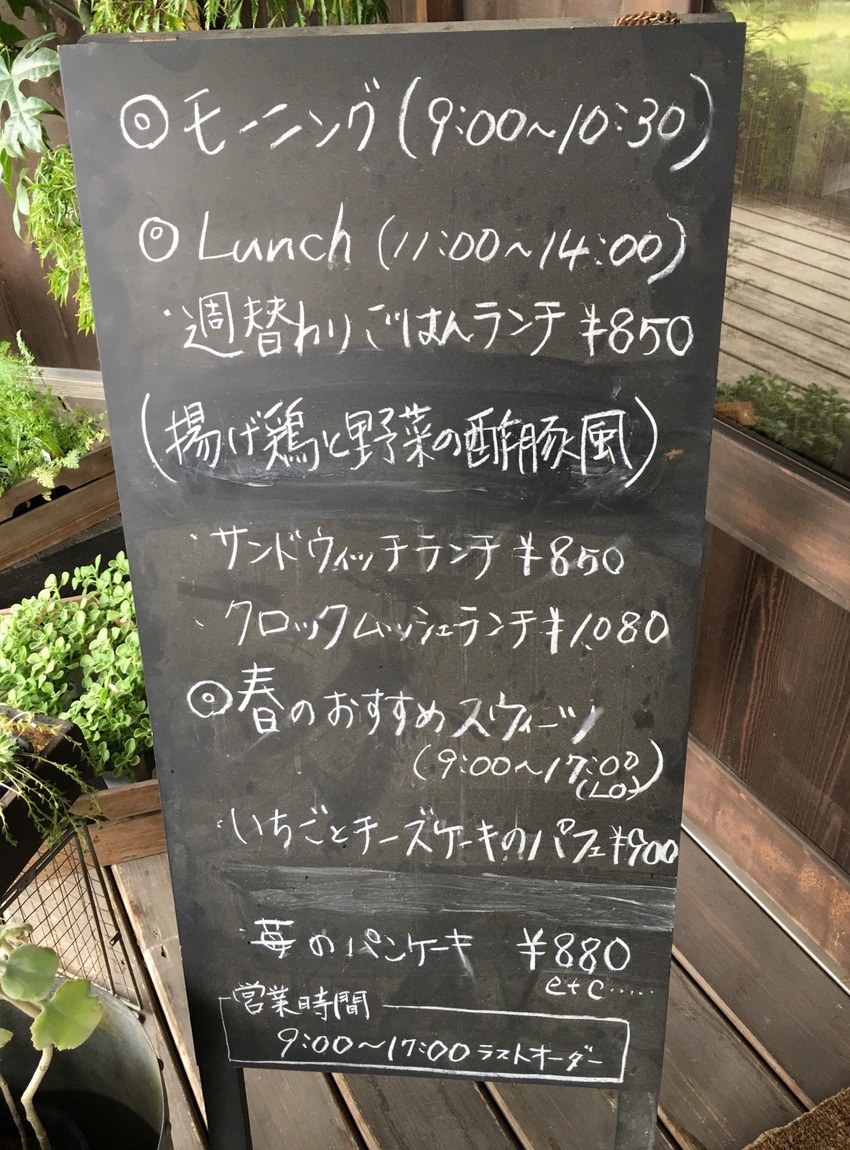 ◎モーニング(9:00~10:30)
◎Lunch(11:00~14:00)
・週替わりごはんランチ ¥850
(揚げ鶏と野菜の酢豚風)
・サンドウィッチランチ ¥850
・クロックムッシュランチ ¥1,080
◎春のおすすめスウィーツ
(9:00~17:00)
(LO)
・いちごとチーズケーキのパフェ ¥900
・苺のパンケーキ ¥880
etc.....
営業時間
9:00~17:00ラストオーダー